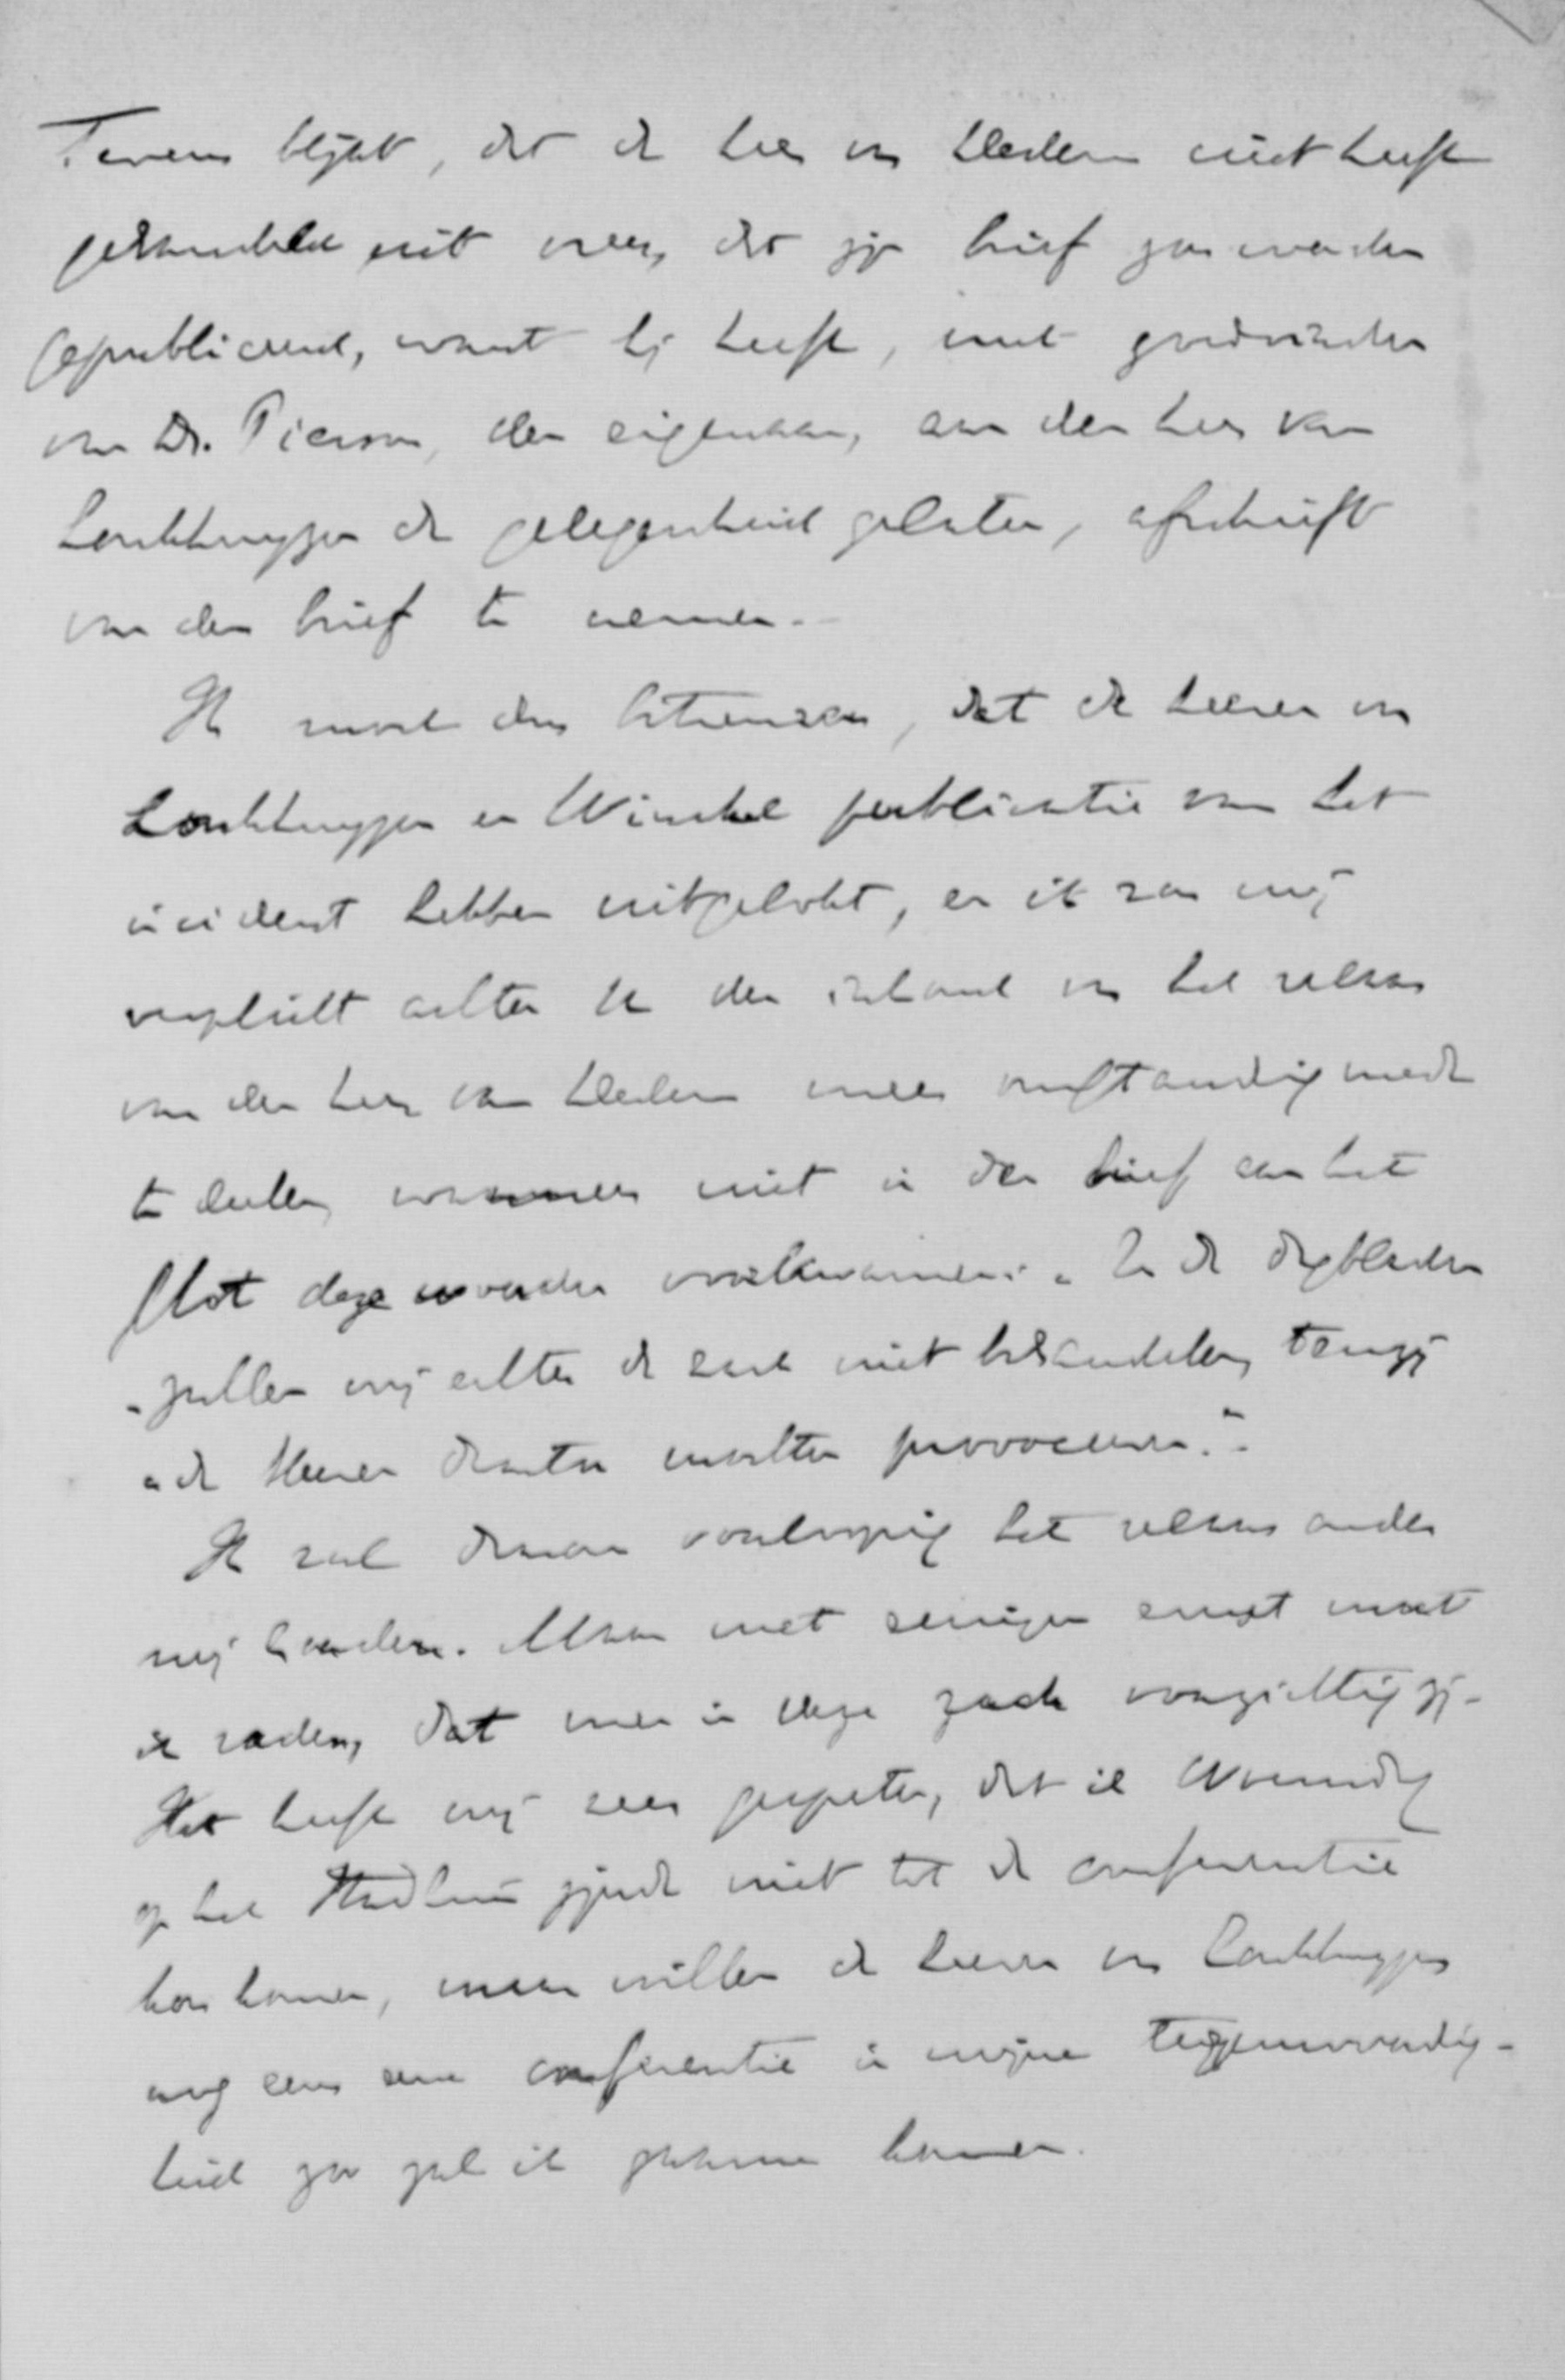 Tevens blijkt, dat de heer van Deelen niet heeft
gehandeld uit vrees, dat zijn brief zou worden
gepubliceerd, want hij heeft, met goedvinden
van Dr. Pierson, den eigenaar, aan den heer van
Lonkhuyzen de gelegenheid gelaten, afschrift
van den brief te nemen.
Ik moet dus betreuren, dat de heeren van
Lonkhuyzen en Winckel publicatie van het
incident hebben uitgelokt, en ik zou mij
verplicht achten U den inhoud van het relaas
van den heer van Deelen meer omstandig mede
te deelen, wanneer niet in den brief aan het
slot deze woorden voorkwamen: „In de dagbladen
„zullen wij echter de zaak niet behandelen, tenzij
„de Heeren daartoe mochten provoceeren."
Ik zal daarom voorloopig het relaas onder
mij houden. Maar met eenigen ernst moet
ik raden, dat men in deze zaak voorzichtig zij.
Het heeft mij zeer gespeten, dat ik Woensdag
op het Stadhuis zijnde niet tot de conferentie
kon komen, maar willen de heeren van Lonkhuyzen
nog eens eene conferentie in mijne tegenwoordig-
heid zoo zal ik gaarne komen.